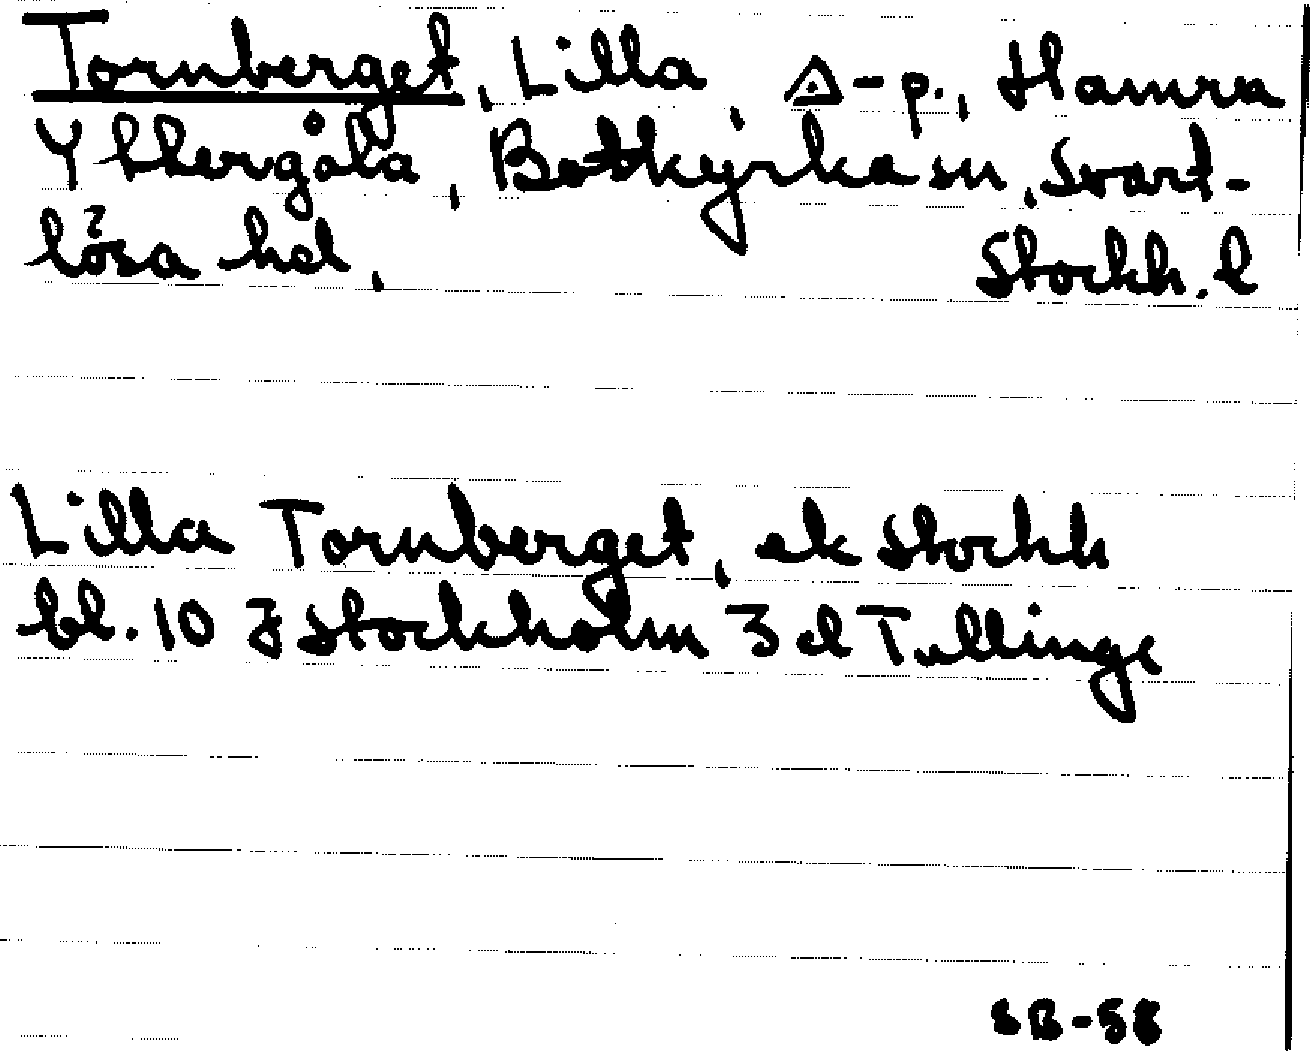 Tornberget, Lilla, △-p., Hamra
Ybbergåla, Botkyrka sn, Svart-
lösa hd, Stockh. l
Lilla Tornberget, ek Stockh
bl. 10 J Stockholm 3 d Tullinge
SB-58